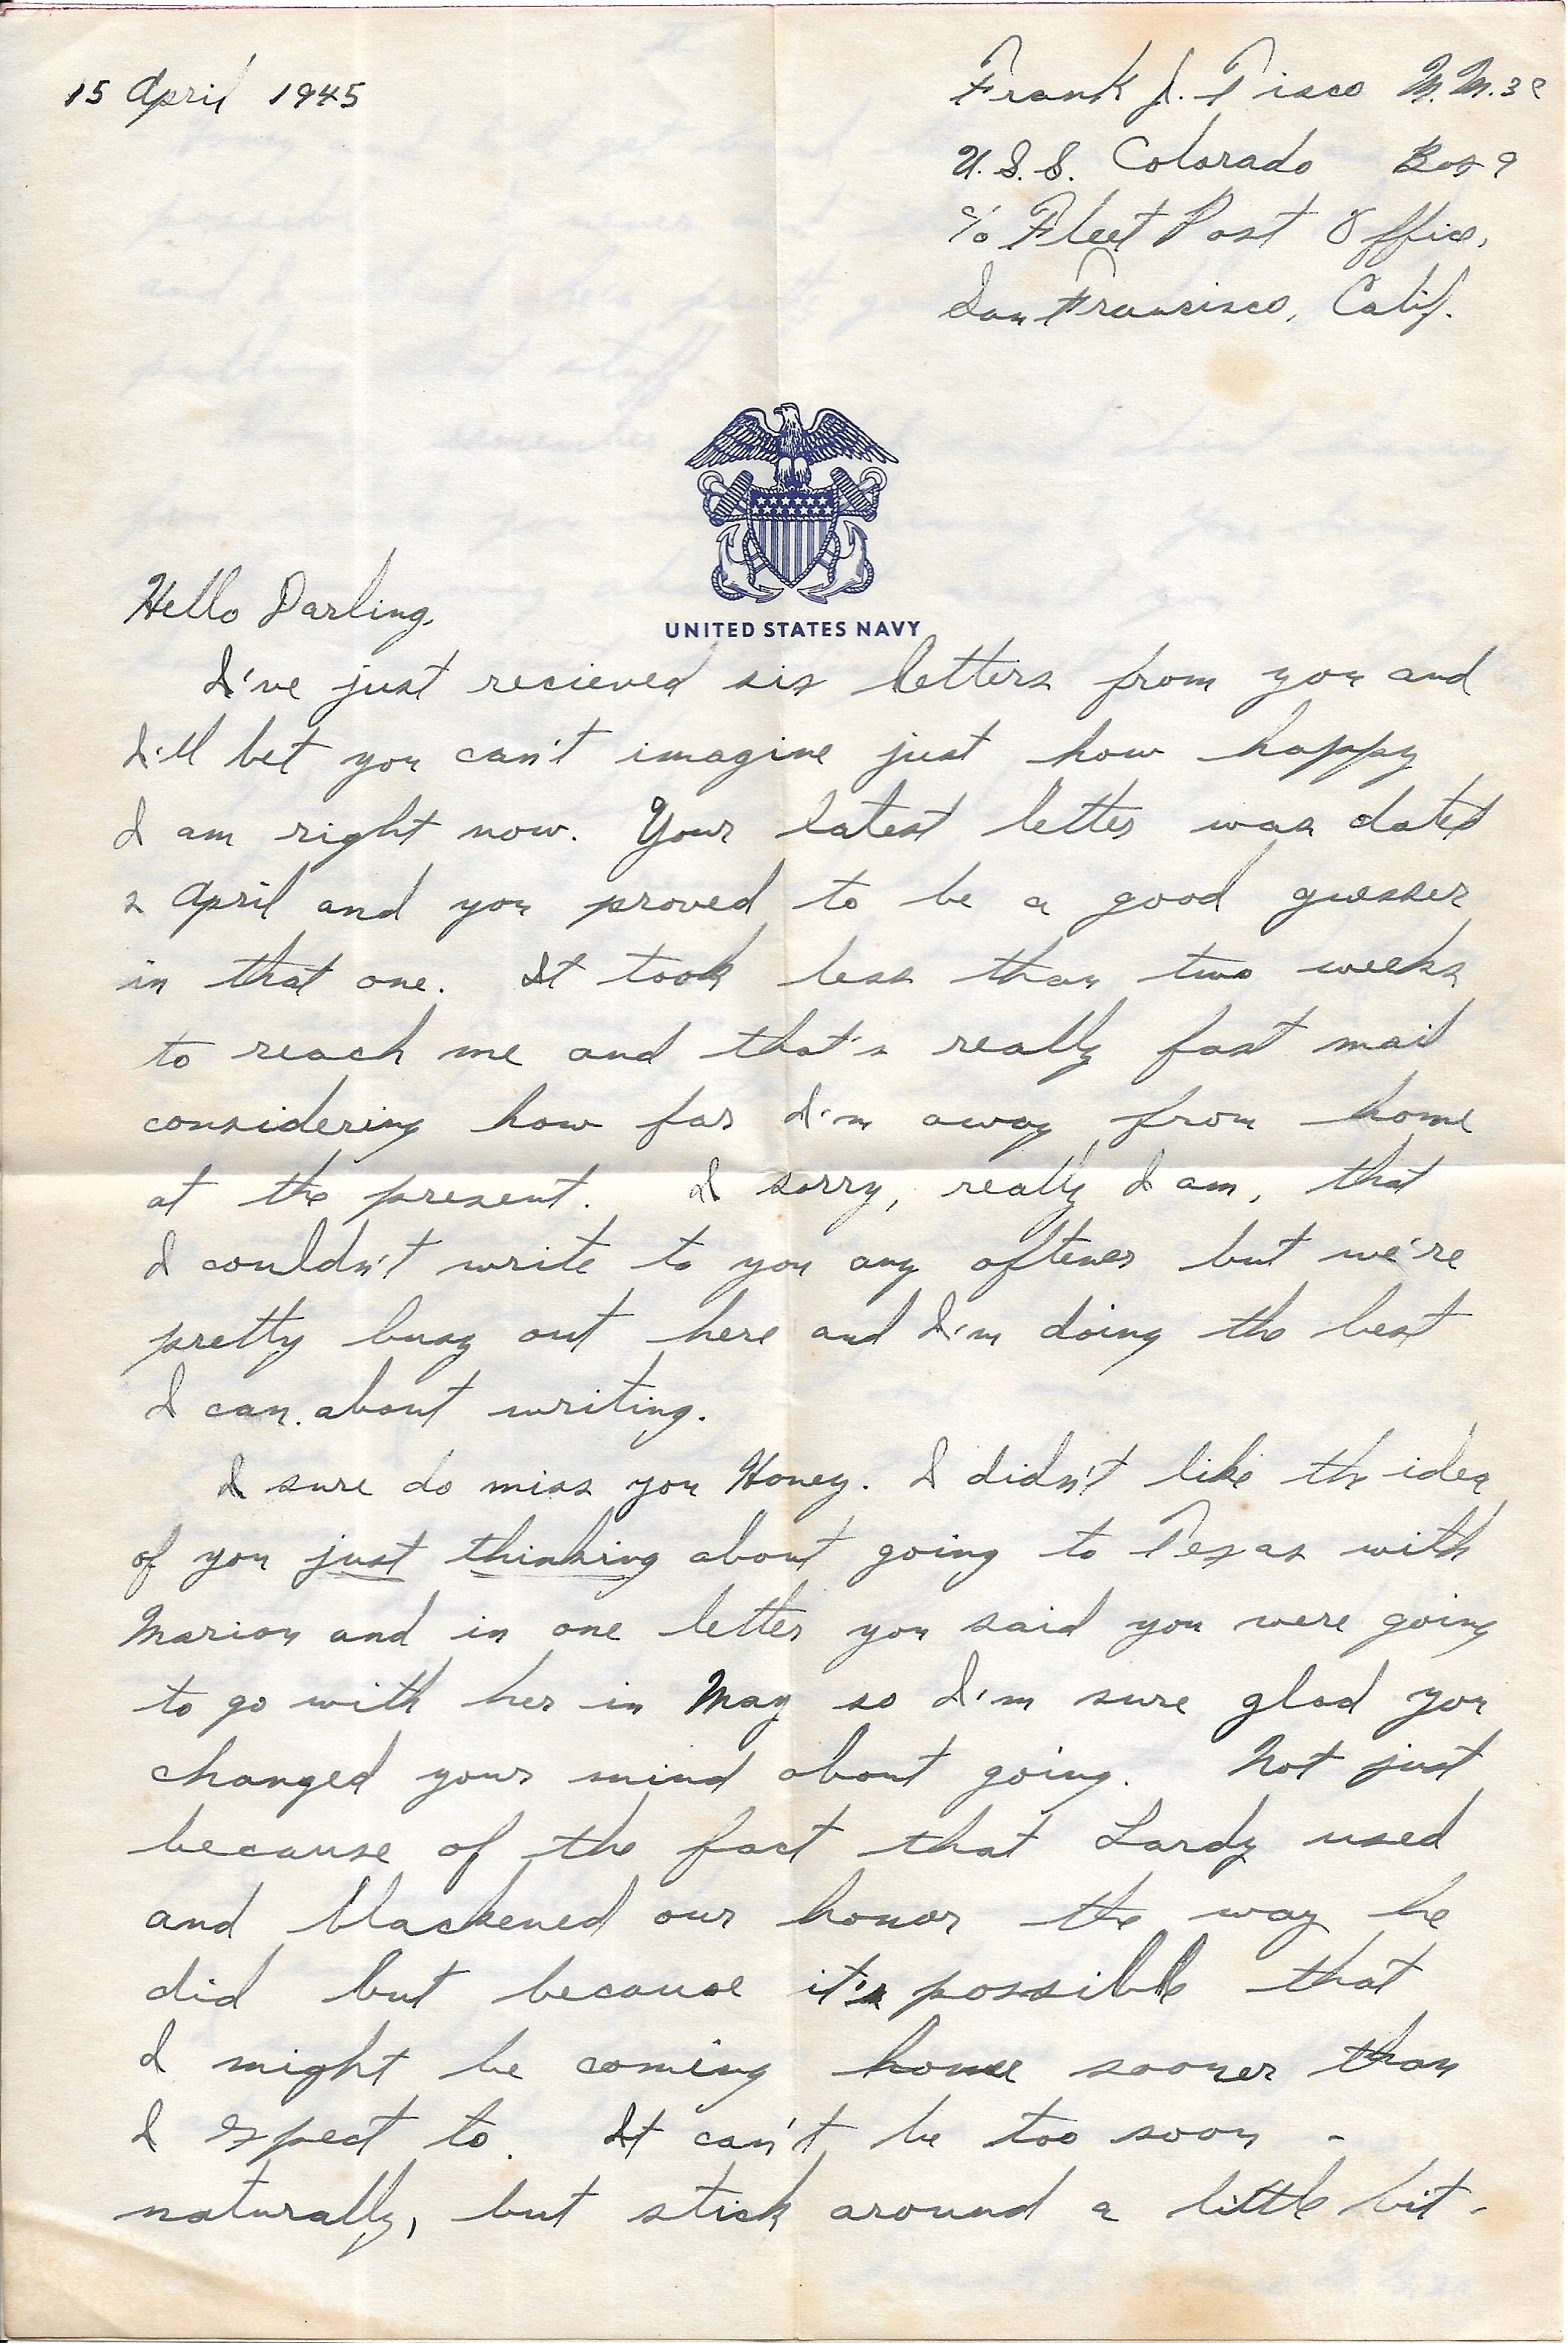 15 April 1945
Frank J. Tisco M.M.3c
U.S.S. Colorado Box 9
c/o Fleet Post Office,
San Francisco, Calif.
UNITED STATES NAVY
Hello Darling,
I've just recieved six letters from you and
I'll bet you can't imagine just how happy
I am right now. Your latest letter was dated
2 April and you proved to be a good guesser
in that one. It took less than two weeks
to reach me and that's really fast mail
considering how far I'm away from home
at the present. I sorry, really I am, that
I couldn't write to you any oftener but we're
pretty busy out here and I'm doing the best
I can about writing.
I sure do miss you Honey. I didn't like the idea
of you just thinking about going to Texas with
Marion and in one letter you said you were going
to go with her in May so I'm sure glad you
changed your mind about going. Not just
because of the fact that Lardy used
and blackened our honor the way he
did but because it's possible that
I might be coming home sooner than
I expect to. It can't be too soon -
naturally, but stick around a little bit -